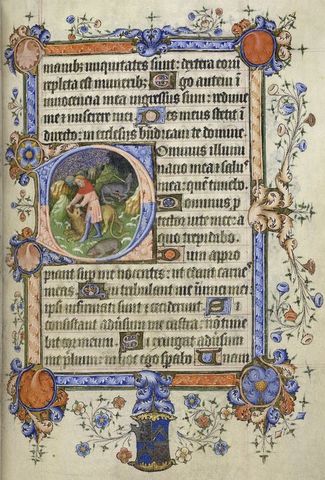 manibꝫ iniquitates sunt: dextera eoꝝ
repleta est muneribꝫ. Ego autem ī
innocencia mea ingressus sum: redime
me et miserere mei Pes meus stetit ī
directo: in ecclesiis bn̄dicam te domine.
Dominus illumi
natio mea et salus
mea: quē timebo.
Dominus pro
tector vite mee: a
quo trepidabo.
Dum appro
piant sup me nocentes: ut edant carnes
meas Qui tribulant me inimici mei
ipsi infirmati sunt et ceciderunt Si
consistant adūsum me castra: nō time
bit cor meum. Si exurgat adūsum
me prelium: in hoc ego sperabo Unam